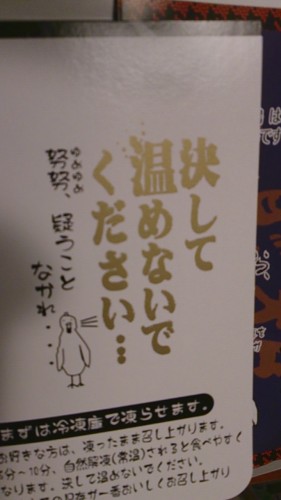 決して
温めないで
ください…
努努、疑うこと
ゆめゆめ
なかれ・・・
まずは冷凍庫で凍らせます。
お好きな方は、凍ったまま召し上がります。
5分～10分、自然解凍(常温)されると食べやすく
なります。決して温めないでください。
が一番おいしくお召し上がり
は
です